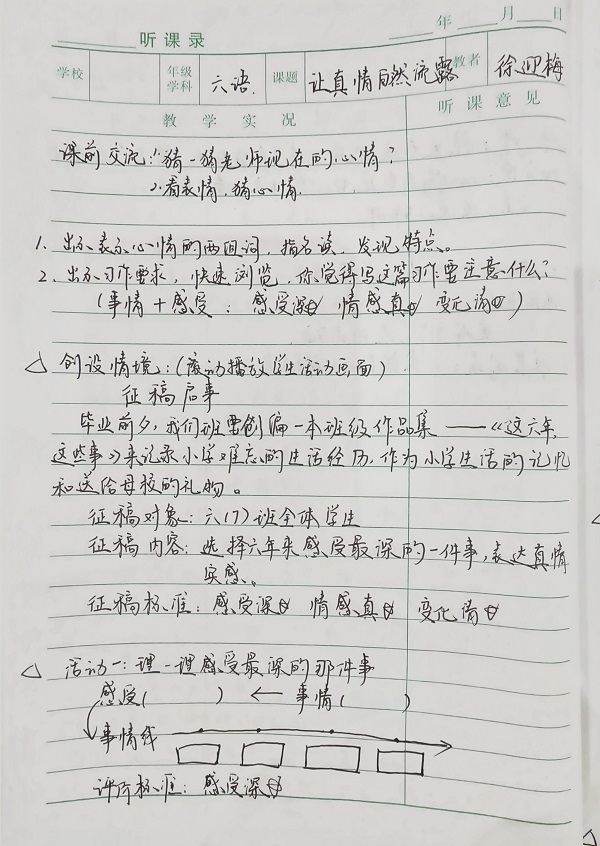 听课录 年 月 日
学校 年级学科 六语. 课题 让真情自然流露 教者 徐迎梅
教学实况 听课意见
课前交流:1.猜一猜老师现在的心情?
2.看表情,猜心情.
1. 出示表示心情的两组词,指名读,发现特点。
2. 出示习作要求,快速浏览,你觉得写这篇习作要注意什么?
(事情+感受:感受深☆ 情感真☆ 变化清☆)
△ 创设情境:(滚动播放学生活动画面)
征稿启事
毕业前夕,我们班要创编一本班级作品集——《这六年,
这些事》来记录小学难忘的生活经历,作为小学生活的记忆
和送给母校的礼物。
征稿对象:六(7)班全体学生
征稿内容:选择六年来感受最深的一件事,表达真情
实感。
征稿标准:感受深☆ 情感真☆ 变化清☆
△ 活动一:理一理感受最深的那件事
感受( ) ← 事情( )
事情线
评价标准:感受深☆